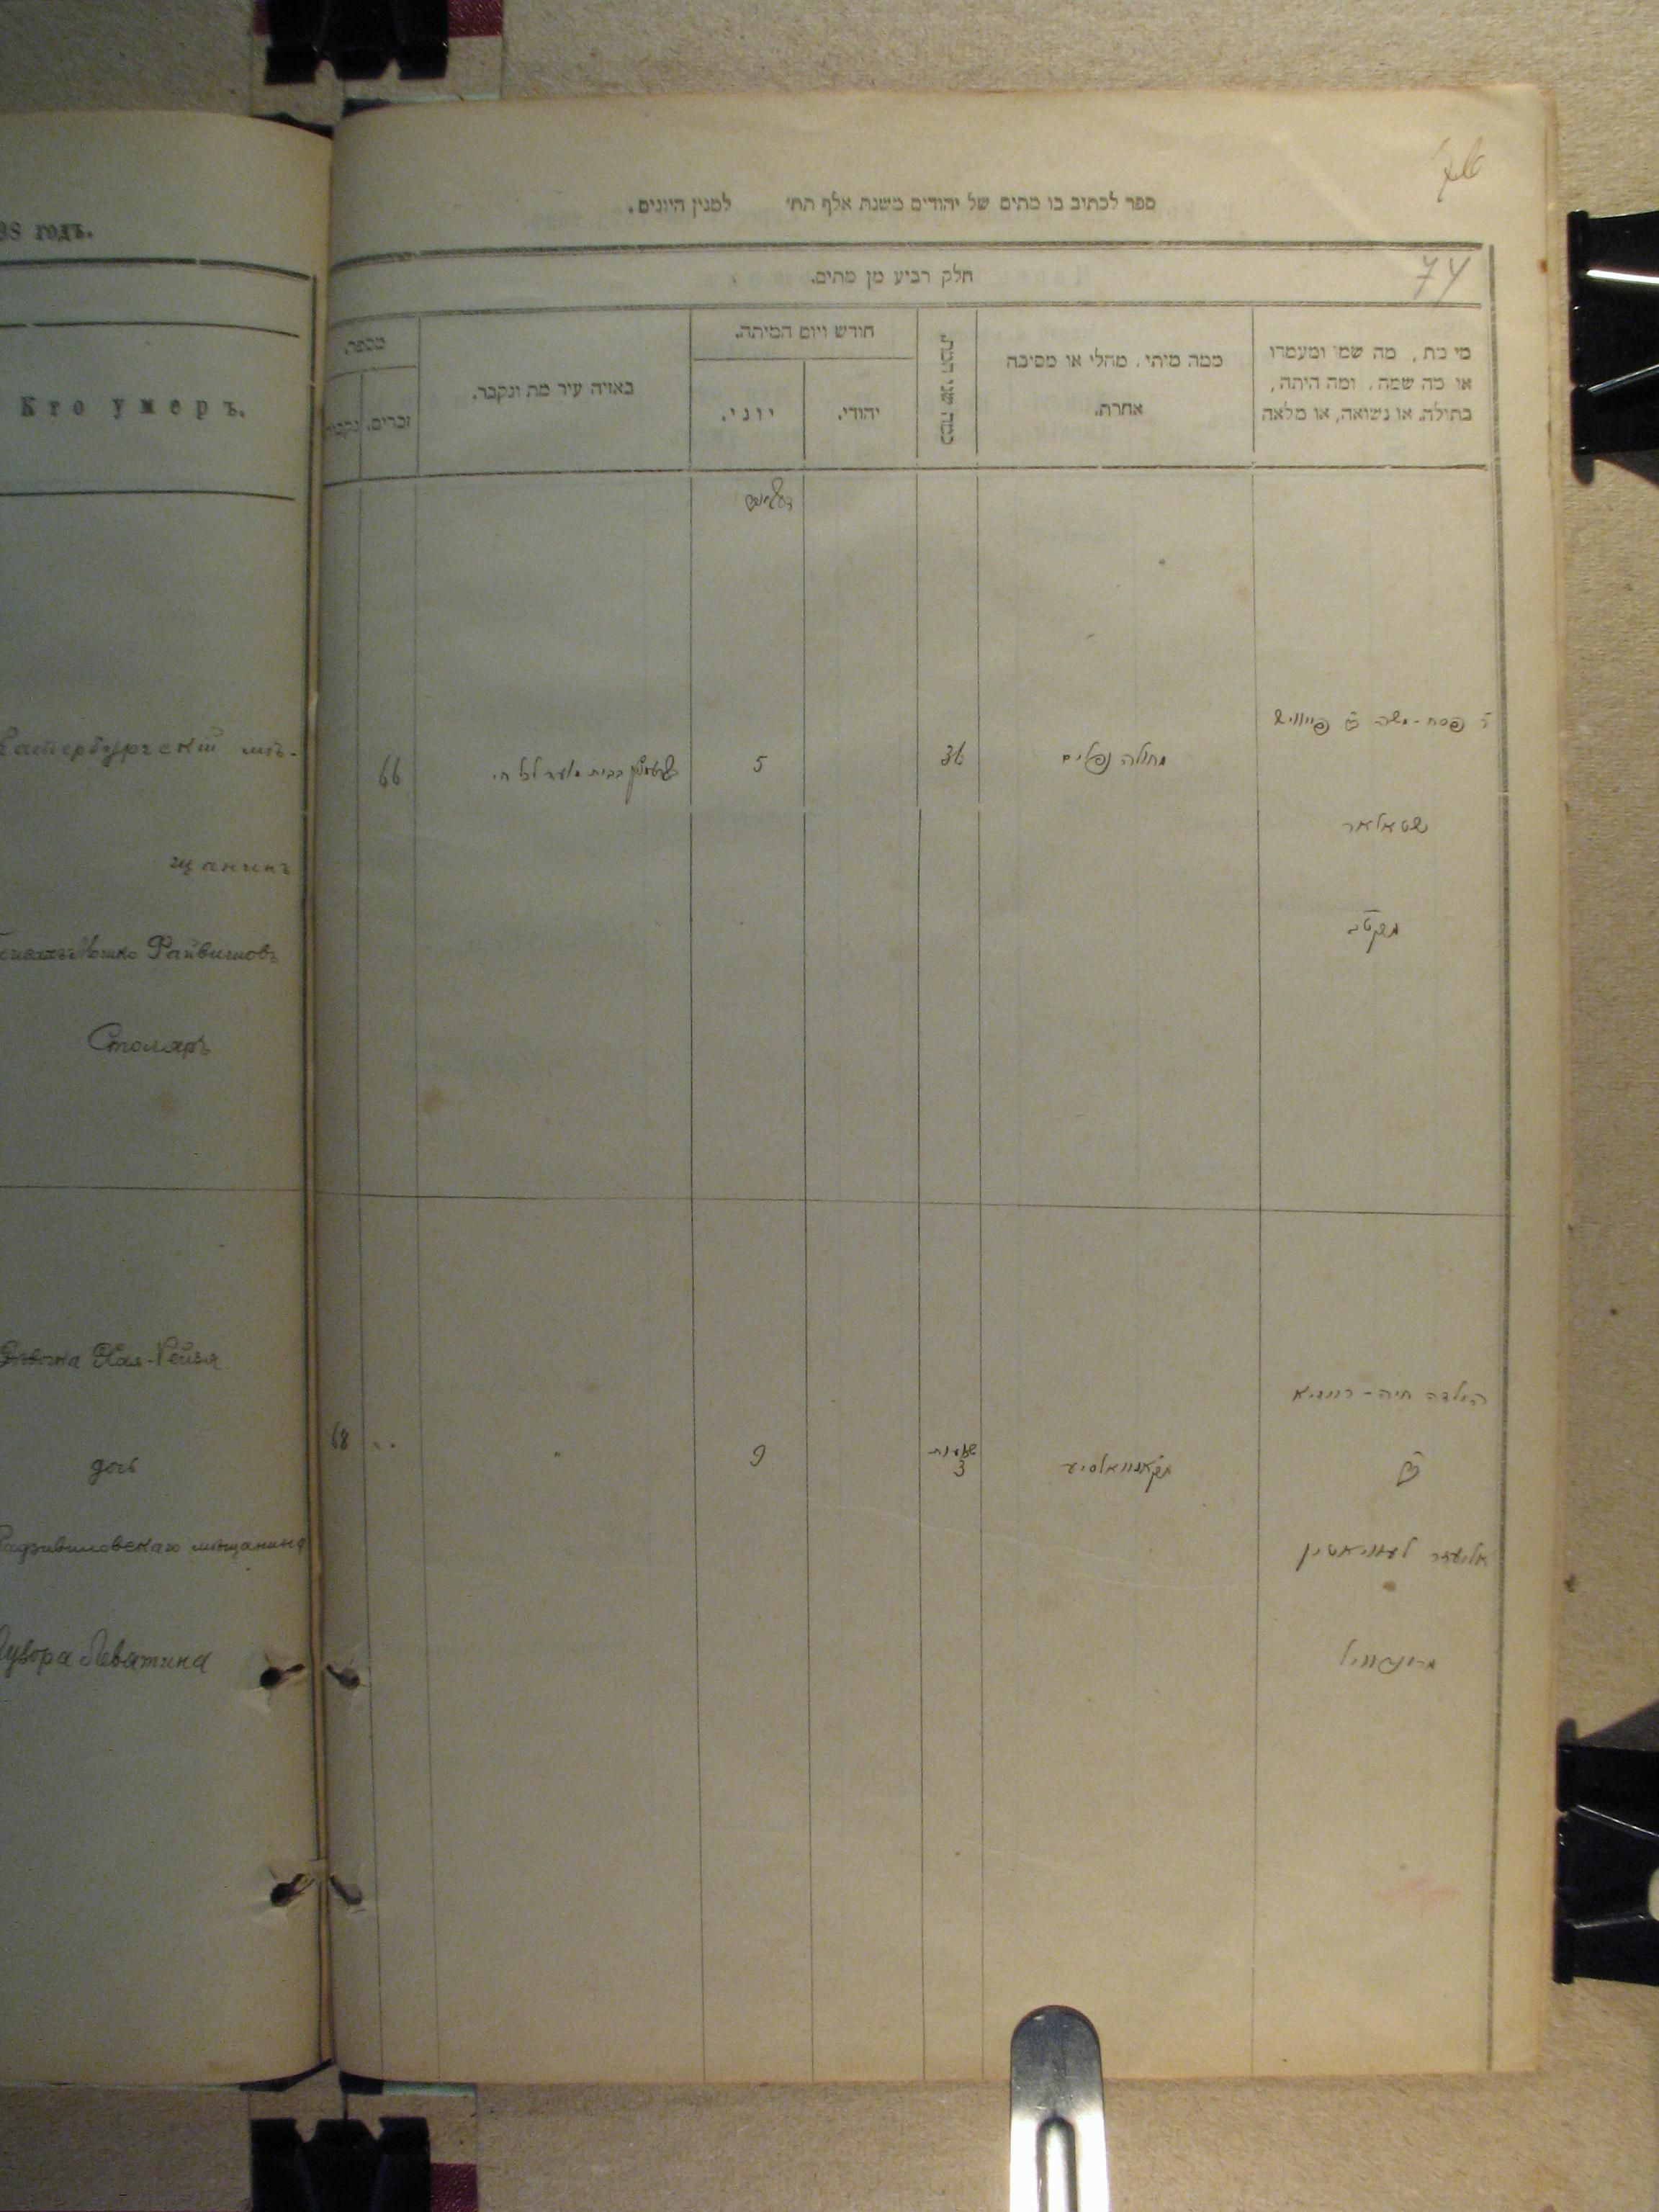 98 годъ.
Кто умеръ.
мѣ-
щанинъ
Мошко Файвишовъ
Столяръ
Хая-Рейзя
дочь
Радзивиловскаго мѣщанина
Левятина
76
ספר לכתוב בו מתים של יהודים משנת אלף תח׳ למנין היונים.
74
חלק רביע מן מתים.
מי מת, מה שמו ומעמדו
או מה שמה, ומה היתה,
בתולה, או נשואה, או מלאה
ממה מיתי, מחלי או מסיבה
אחרת.
כמה שני המת.
חודש ויום המיתה.
יהודי.
יוני.
באזיה עיר מת ונקבר.
מספר.
זכרים.
נקבות
ר׳ פסח-משה ב״ר פייוויש
שטאלאר
מחולה נפלים
36
5
בבית מועד לכל חי
66
הילדה חיה-רייזיא
אליעזר לעוויאטין
שעות
3
9
68